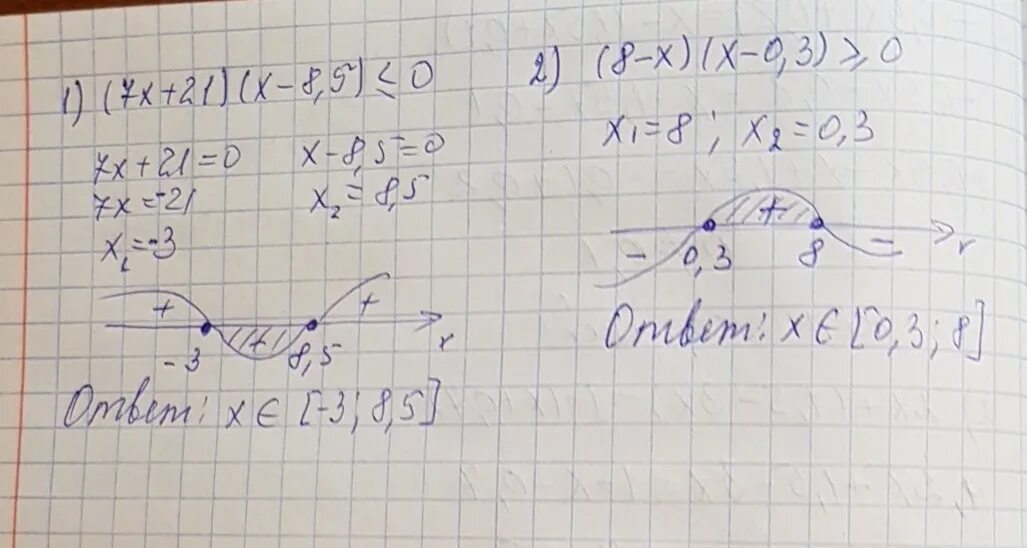 1) (7x+21)(x-8,5) ≤ 0
7x+21=0 x-8,5=0
7x=-21 x₂=8,5
x₁=-3
+ + +
-3 8,5 x
Ответ: x ∈ [-3; 8,5]
2) (8-x)(x-0,3) ≥ 0
x₁=8; x₂=0,3
- + -
0,3 8 x
Ответ: x ∈ [0,3; 8]